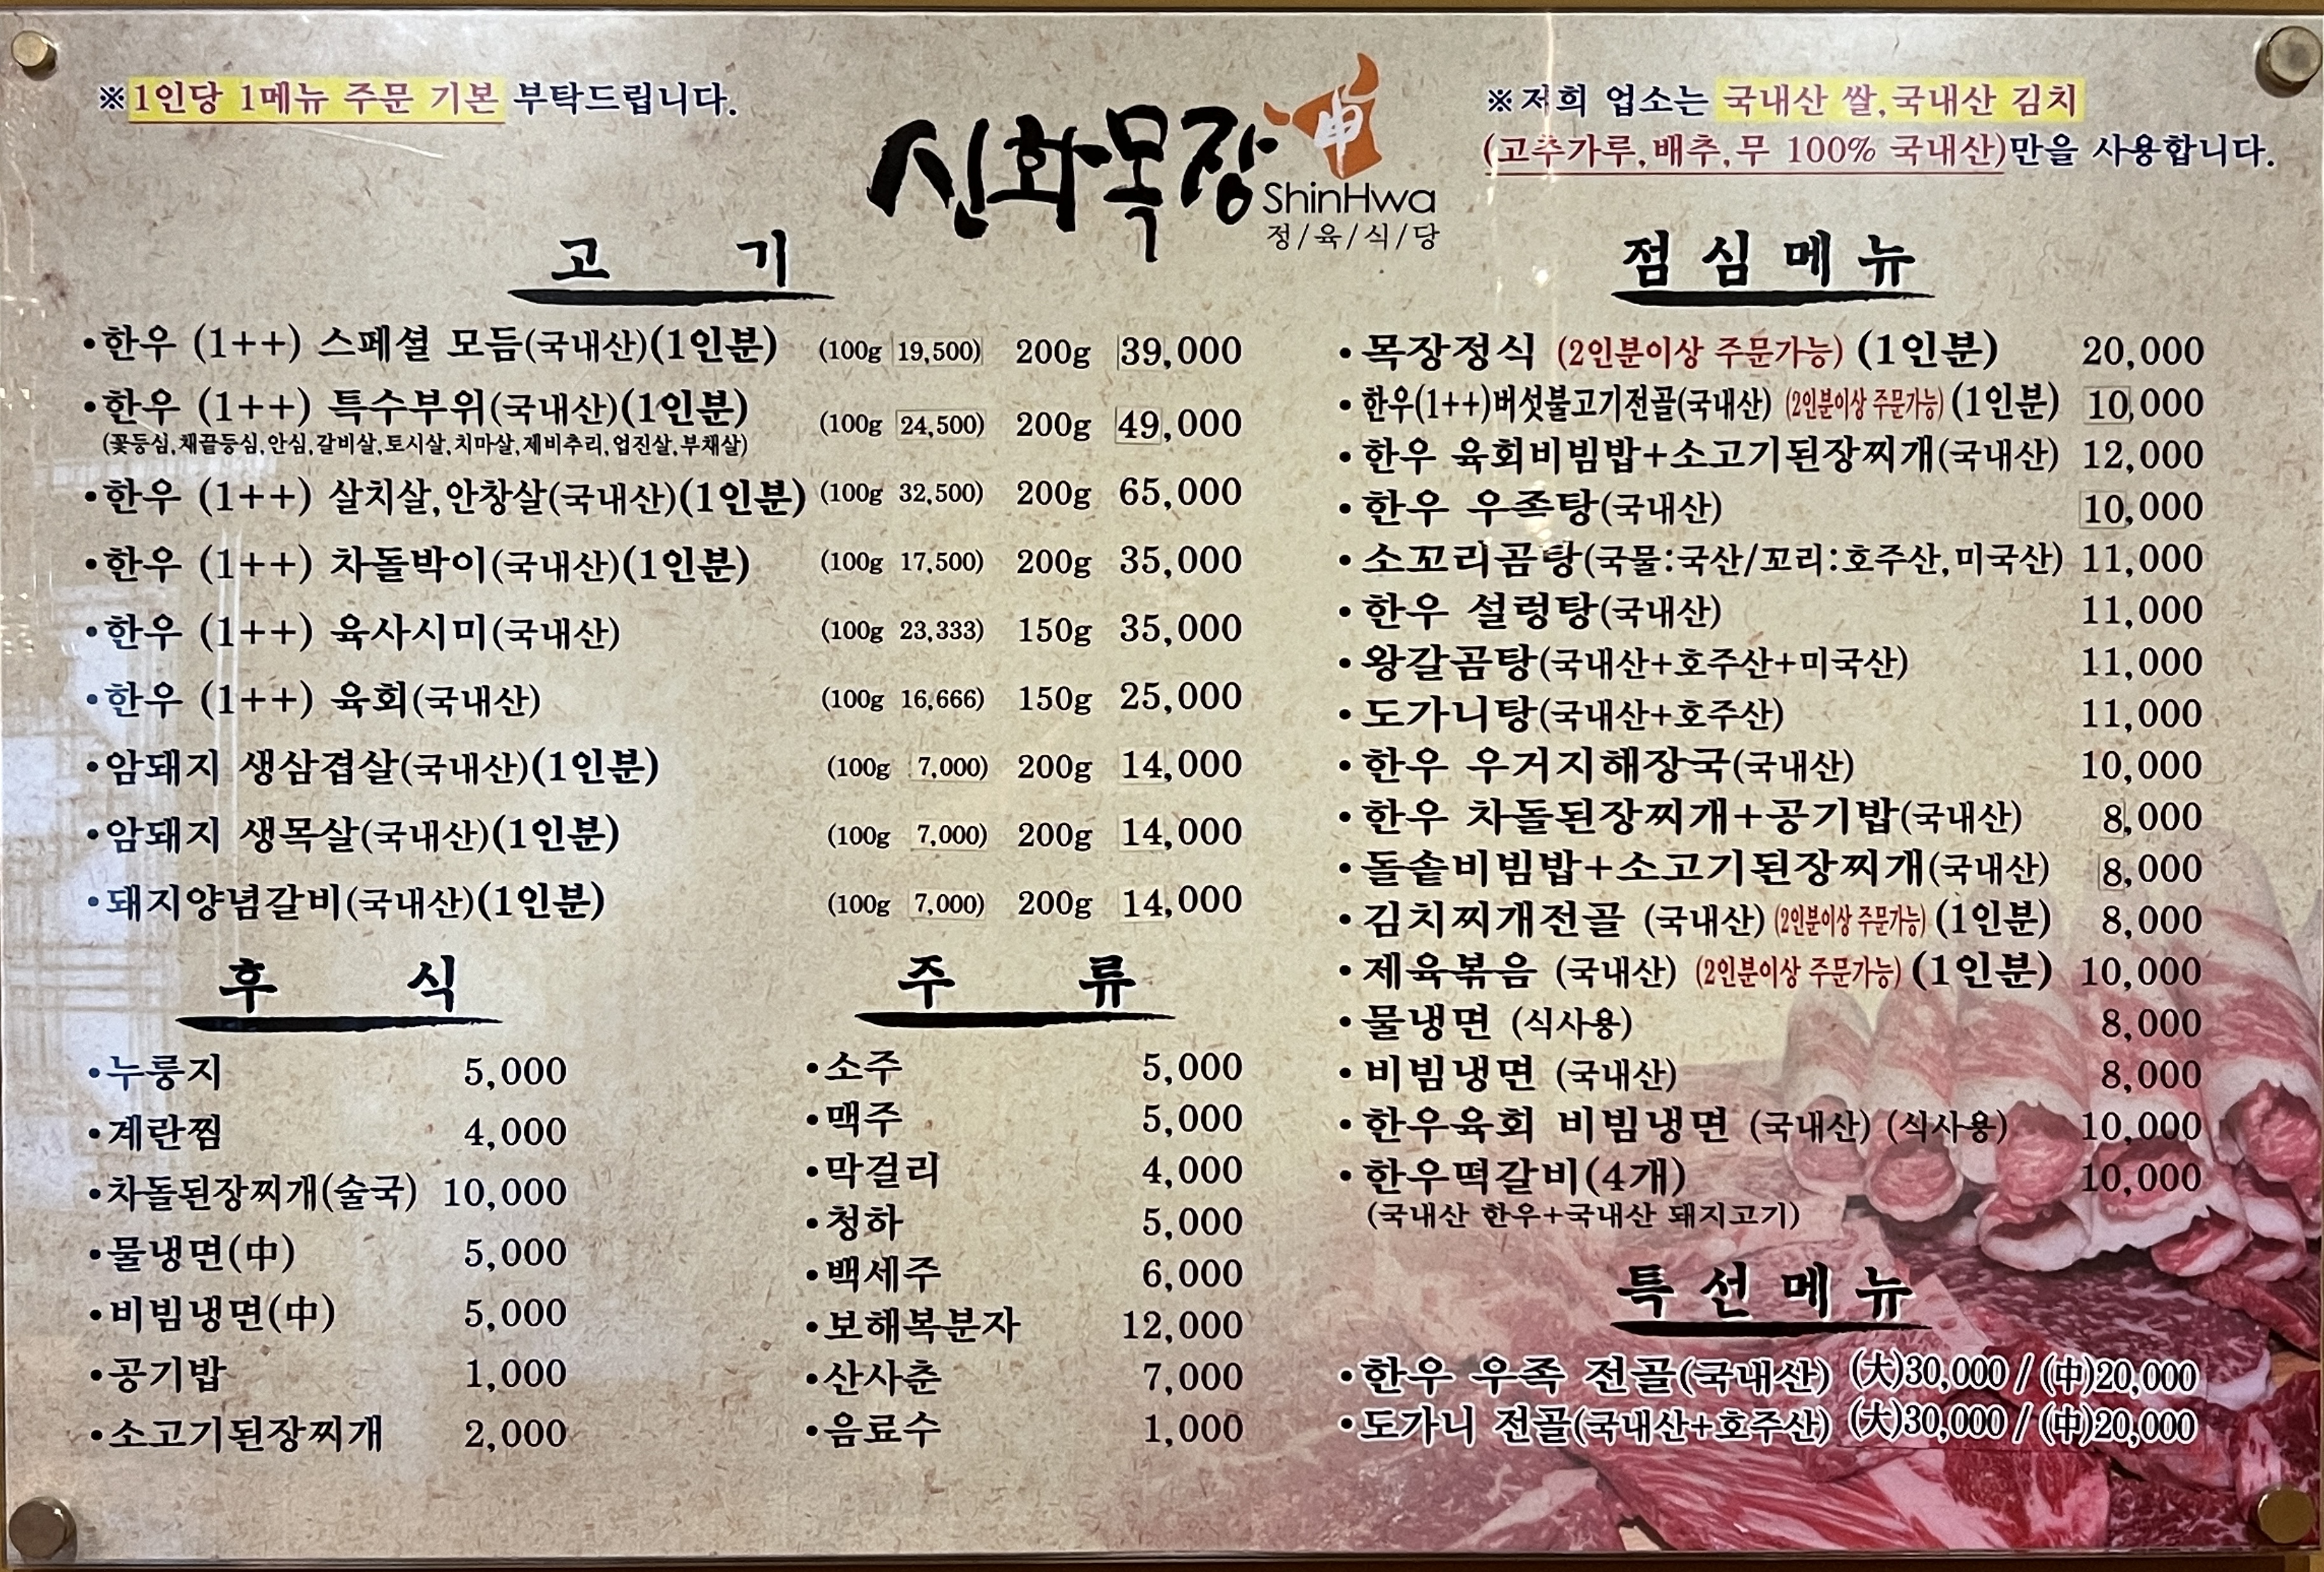 ※1인당 1메뉴 주문 기본 부탁드립니다.
신화목장
申
ShinHwa
정/육/식/당
※저희 업소는 국내산 쌀,국내산 김치
(고추가루,배추,무 100% 국내산)만을 사용합니다.
고 기
•한우 (1++) 스페셜 모듬(국내산)(1인분) (100g 19,500) 200g 39,000
•한우 (1++) 특수부위(국내산)(1인분) (100g 24,500) 200g 49,000
(꽃등심,채끝등심,안심,갈비살,토시살,치마살,제비추리,업진살,부채살)
•한우 (1++) 살치살,안창살(국내산)(1인분) (100g 32,500) 200g 65,000
•한우 (1++) 차돌박이(국내산)(1인분) (100g 17,500) 200g 35,000
•한우 (1++) 육사시미(국내산) (100g 23,333) 150g 35,000
•한우 (1++) 육회(국내산) (100g 16,666) 150g 25,000
•암돼지 생삼겹살(국내산)(1인분) (100g 7,000) 200g 14,000
•암돼지 생목살(국내산)(1인분) (100g 7,000) 200g 14,000
•돼지양념갈비(국내산)(1인분) (100g 7,000) 200g 14,000
후 식
•누룽지 5,000
•계란찜 4,000
•차돌된장찌개(술국) 10,000
•물냉면(中) 5,000
•비빔냉면(中) 5,000
•공기밥 1,000
•소고기된장찌개 2,000
주 류
•소주 5,000
•맥주 5,000
•막걸리 4,000
•청하 5,000
•백세주 6,000
•보해복분자 12,000
•산사춘 7,000
•음료수 1,000
점심메뉴
•목장정식 (2인분이상 주문가능) (1인분) 20,000
•한우(1++)버섯불고기전골(국내산) (2인분이상 주문가능) (1인분) 10,000
•한우 육회비빔밥+소고기된장찌개(국내산) 12,000
•한우 우족탕(국내산) 10,000
•소꼬리곰탕(국물:국산/꼬리:호주산,미국산) 11,000
•한우 설렁탕(국내산) 11,000
•왕갈곰탕(국내산+호주산+미국산) 11,000
•도가니탕(국내산+호주산) 11,000
•한우 우거지해장국(국내산) 10,000
•한우 차돌된장찌개+공기밥(국내산) 8,000
•돌솥비빔밥+소고기된장찌개(국내산) 8,000
•김치찌개전골 (국내산) (2인분이상 주문가능) (1인분) 8,000
•제육볶음 (국내산) (2인분이상 주문가능) (1인분) 10,000
•물냉면 (식사용) 8,000
•비빔냉면 (국내산) 8,000
•한우육회 비빔냉면 (국내산) (식사용) 10,000
•한우떡갈비(4개) 10,000
(국내산 한우+국내산 돼지고기)
특선메뉴
•한우 우족 전골(국내산) (大)30,000 / (中)20,000
•도가니 전골(국내산+호주산) (大)30,000 / (中)20,000